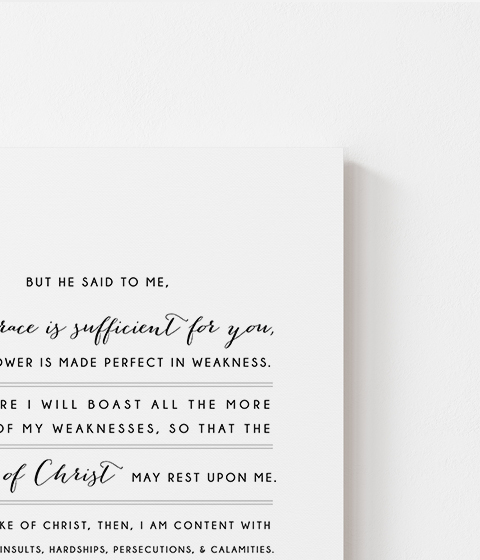 BUT HE SAID TO ME,
race is sufficient for you,
OWER IS MADE PERFECT IN WEAKNESS.
RE I WILL BOAST ALL THE MORE
OF MY WEAKNESSES, SO THAT THE
of Christ MAY REST UPON ME.
KE OF CHRIST, THEN, I AM CONTENT WITH
INSULTS, HARDSHIPS, PERSECUTIONS, & CALAMITIES.